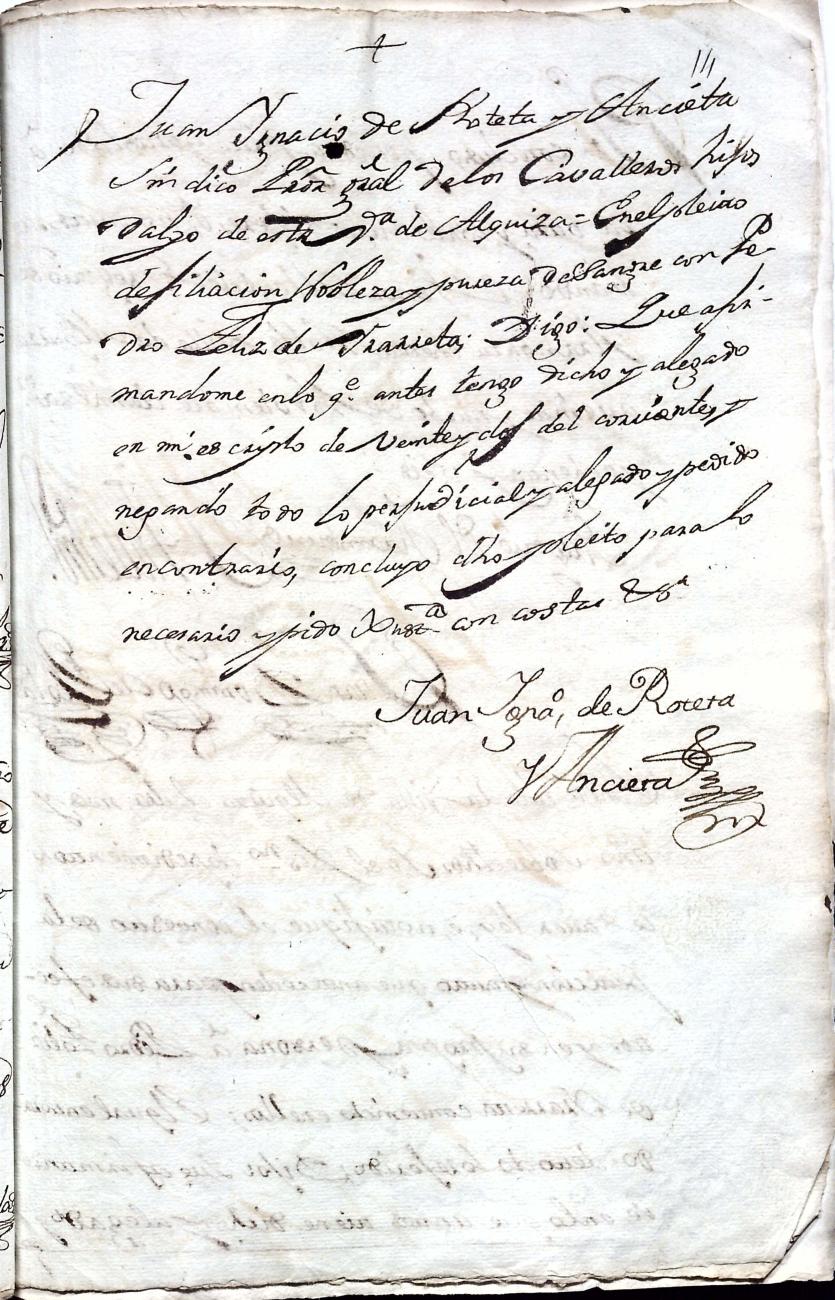 +
111
Juan Ygnacio de Roteta y Ancieta
Sindico Pror. gral de los Cavalleros hijos
Dalgo de esta V.a de Alquiza = En el pleito
de filiacion Nobleza y pureza de Sangre con Pe-
dro Feliz de Yrarreta; Digo: Que afir-
mandome en lo q.e antes tengo dicho y alegado
en mi escripto de veinte y dos del corriente, y
negando todo lo perjudicial y alegado y pedido
en contrario, concluyo dho pleito para lo
necesario y pido Just.a con costas &a
Juan Ygna.o de Roteta
Y Ancieta